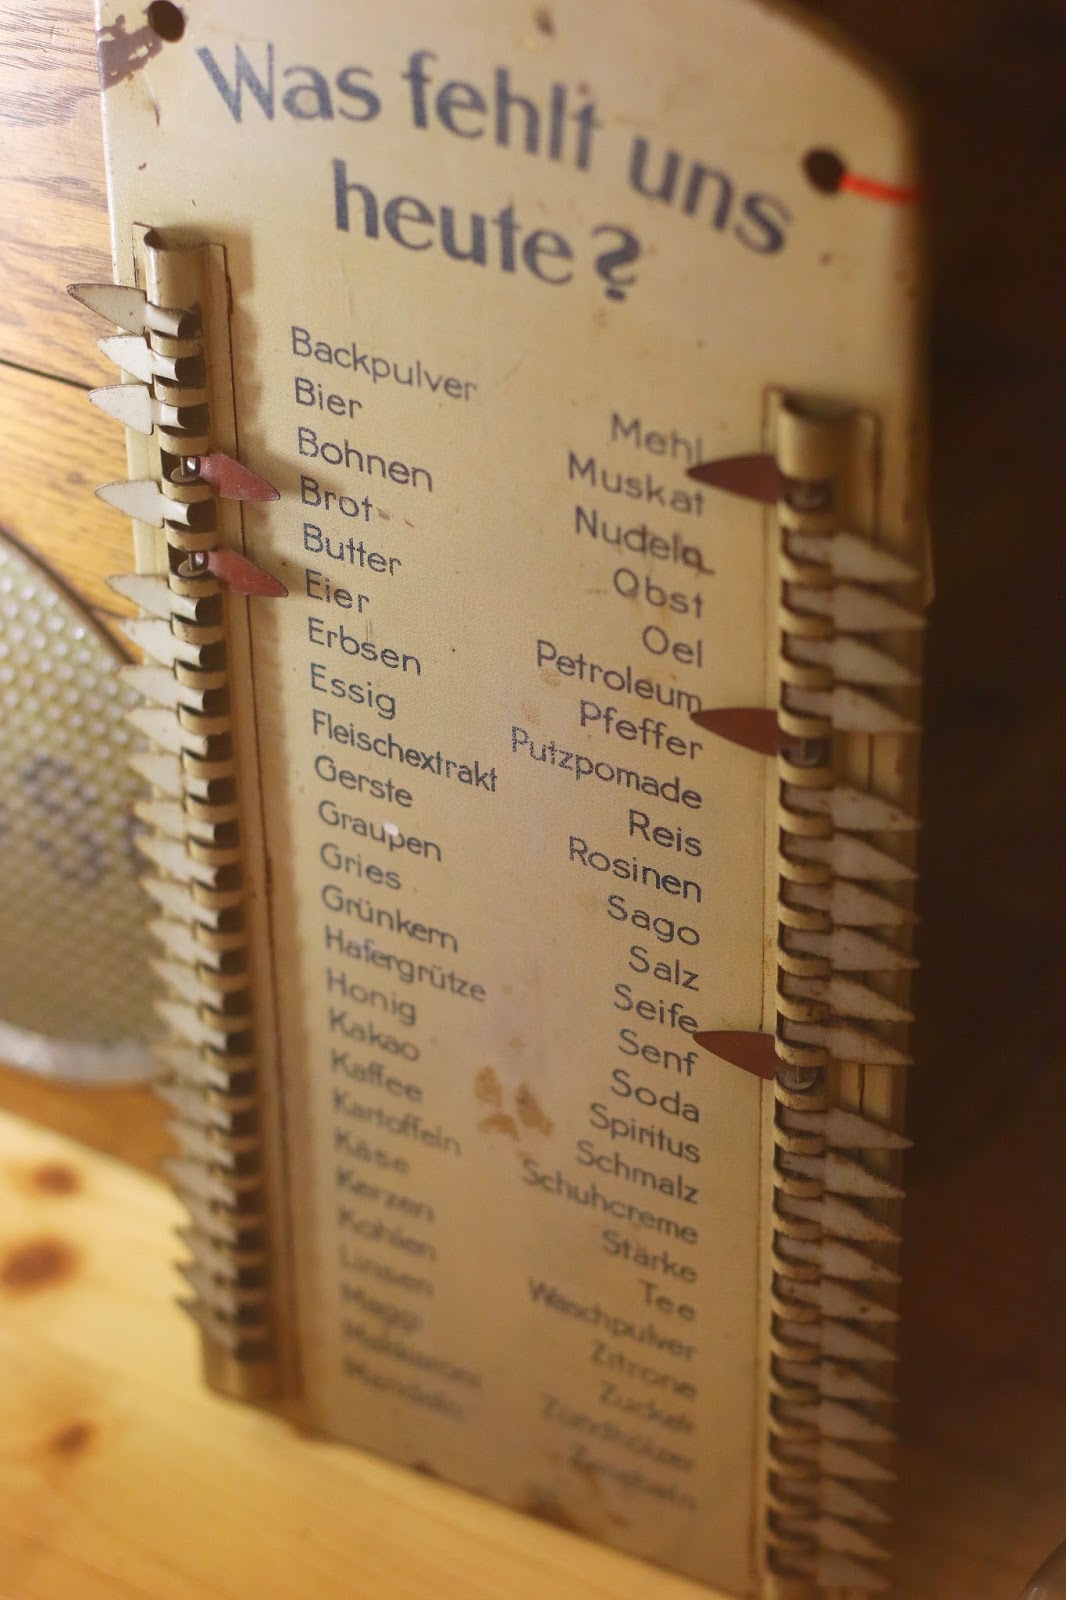 Was fehlt uns
heute?
Backpulver
Bier
Bohnen
Brot
Butter
Eier
Erbsen
Essig
Fleischextrakt
Gerste
Graupen
Gries
Grünkern
Hafergrütze
Honig
Kakao
Kaffee
Kartoffeln
Käse
Kerzen
Kohlen
Linsen
Maggi
Makkaroni
Mandeln
Mehl
Muskat
Nudeln
Obst
Oel
Petroleum
Pfeffer
Putzpomade
Reis
Rosinen
Sago
Salz
Seife
Senf
Soda
Spiritus
Schmalz
Schuhcreme
Stärke
Tee
Waschpulver
Zitrone
Zucker
Zündhölzer
Zwiebeln